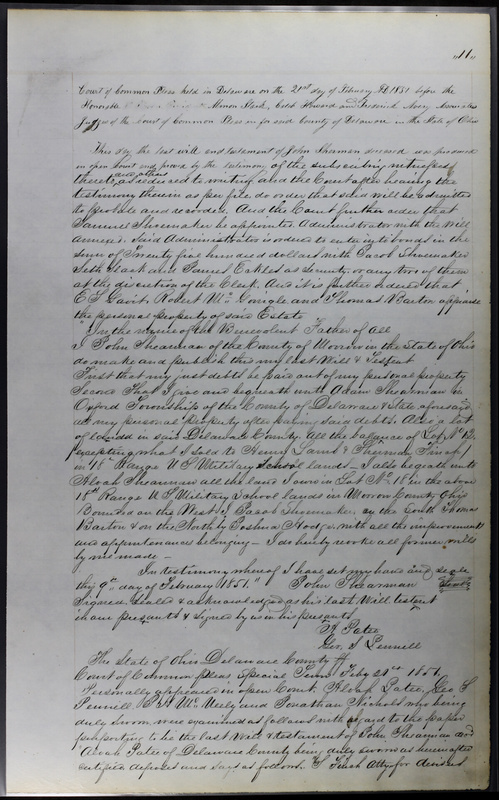 "11"
Court of Common Pleas held in Delaware on the 21st day of February AD 1851 before the
Honorable Hosea Clark, Caleb Howard and Frederick Avery Associates
Judges of the Court of Common Pleas in for said County of Delaware in the State of Ohio
This day the last will and testament of John Shearman deceased was produced
in open Court and proved by the testimony of the subscribing witnesses
thereto and others as reduced to writing and the Court after hearing the
testimony therein as per file do order that said will be admitted
to probate and recorded. And the Court further order that
Samuel Shoemaker be appointed Administrator with the Will
annexed. Said Administrator is ordered to enter into bonds in the
sum of Twenty five hundred dollars with Jacob Shoemaker
Seth Slack and James Eckles as Security or any two of them
at the discretion of the Clerk. And it is further ordered that
E S Robert Mc Gonigle and Thomas Barton appraise
the personal property of said Estate
"In the name of the Benevolent Father of All
I John Shearman of the County of Morrow in the State of Ohio
do make and publish this my last Will & Testament
First that my just debts be paid out of my personal property
Second That I give and bequeath unto Adam Shearman in
Oxford Township of the County of Delaware & State aforesaid
all my personal property after paying said debts. Also a lot
of land in said Delaware County. All the balance of Lot No 12.
(excepting what I sold to Henry & Sherman)
in 18th Range U S Military School lands – I also bequeath unto
Shearman all the land I own in Lot No 18 in the above
18th Range U S Military School lands in Morrow County Ohio
Bounded on the West by Jacob Shoemaker, on the South Thomas
Barton & on the North by Joshua Hodge, with all the improvements
and appurtenances belonging – I do hereby revoke all former wills
by me made –
In testimony whereof I have set my hand and seal
this 9th day of February 1851." John Shearman Seal
Signed, sealed & acknowledged as his last Will & testament
in our presents & signed by us in his presents
A Patee
Geo. S Pennell
The State of Ohio Delaware County ss
Court of Common pleas, Special Term Feby 21st 1851.
Personally appeared in open Court Patee, Geo S
Pennell, Mc Neely and Jonathan Nichols who being
duly sworn were examined as follows with regard to the paper
purporting to be the last Will & testament of John Shearman decd
Patee of Delaware County being duly sworn as hereinafter
certified deposes and says as follows. T Finch Atty for devisees